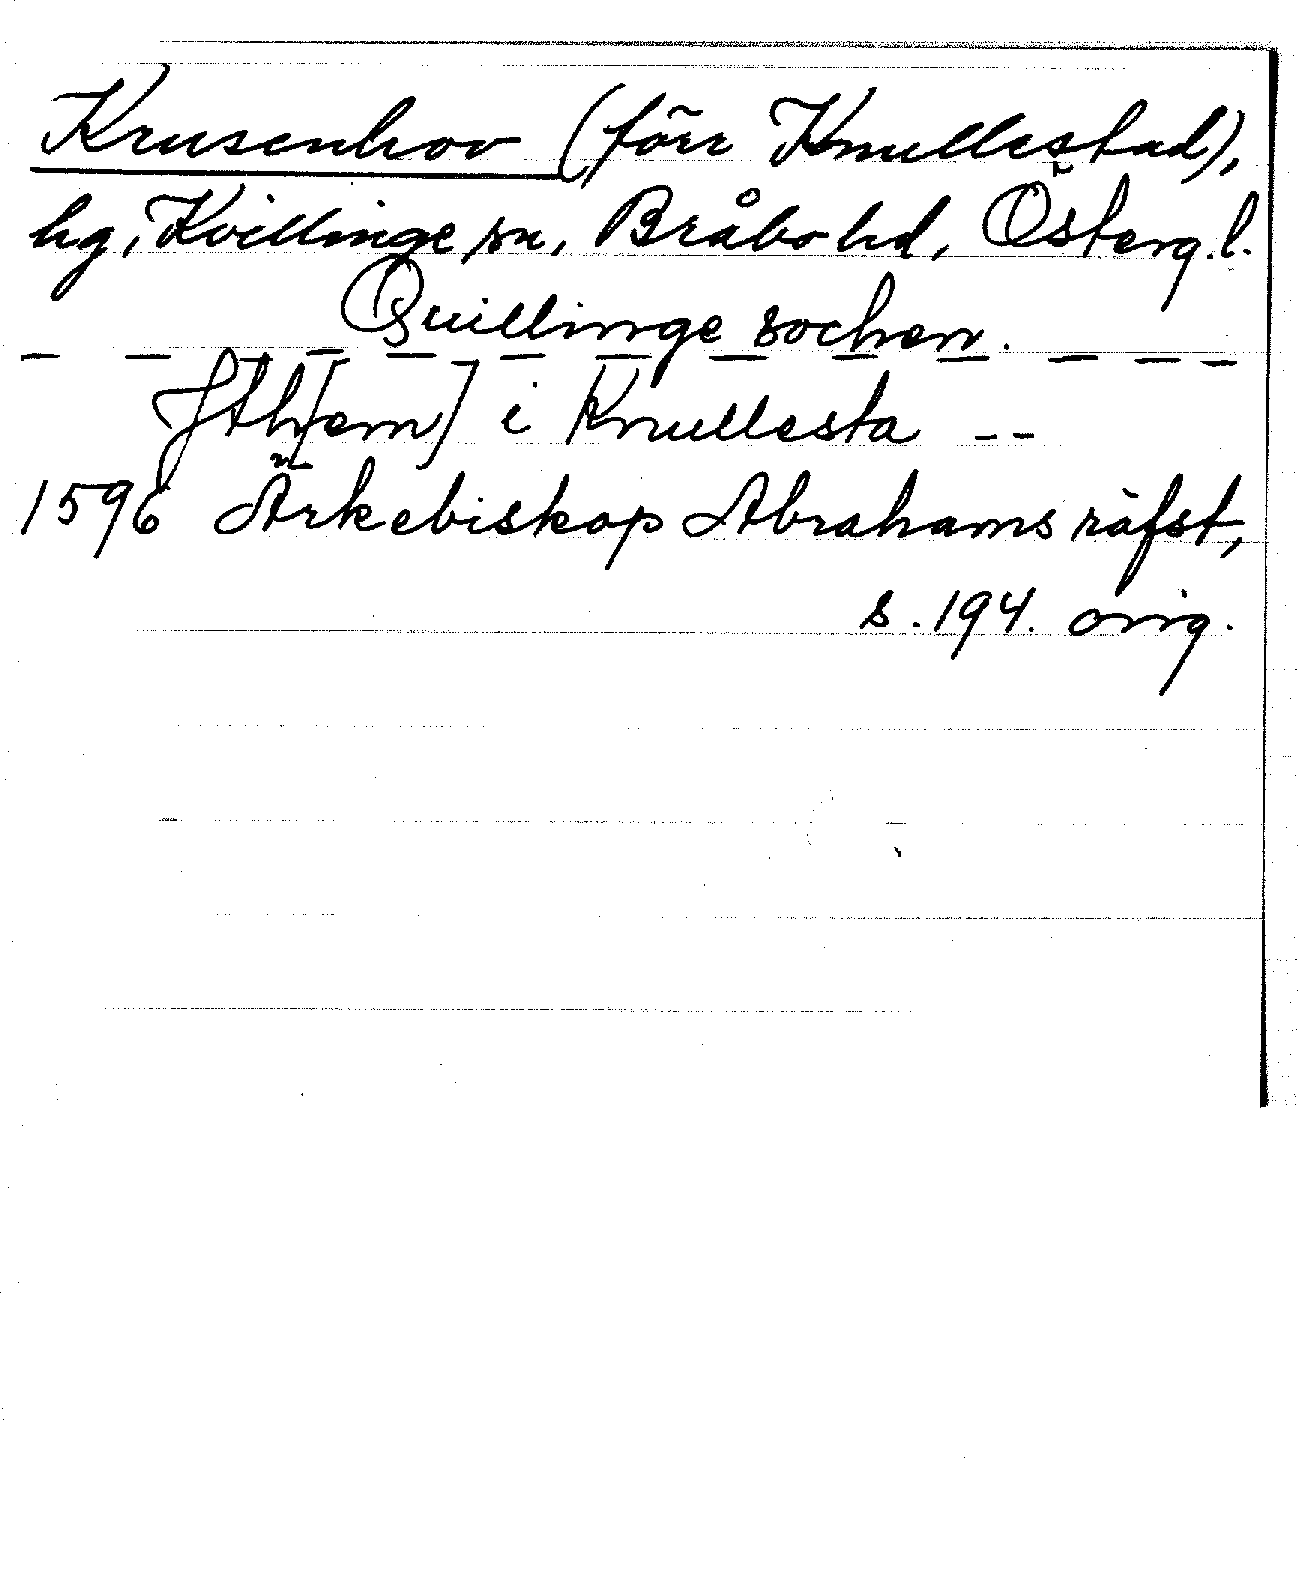 Krusenhov (förr Knullestad),
hg, Kvillinge sn, Bråbo hd, Österg.l.
Quillinge sochen.
— — — — — — — — — — — —
Jth[em] i Knullesta --
1596 Ärkebiskop Abrahams räfst,
s. 194. orig.